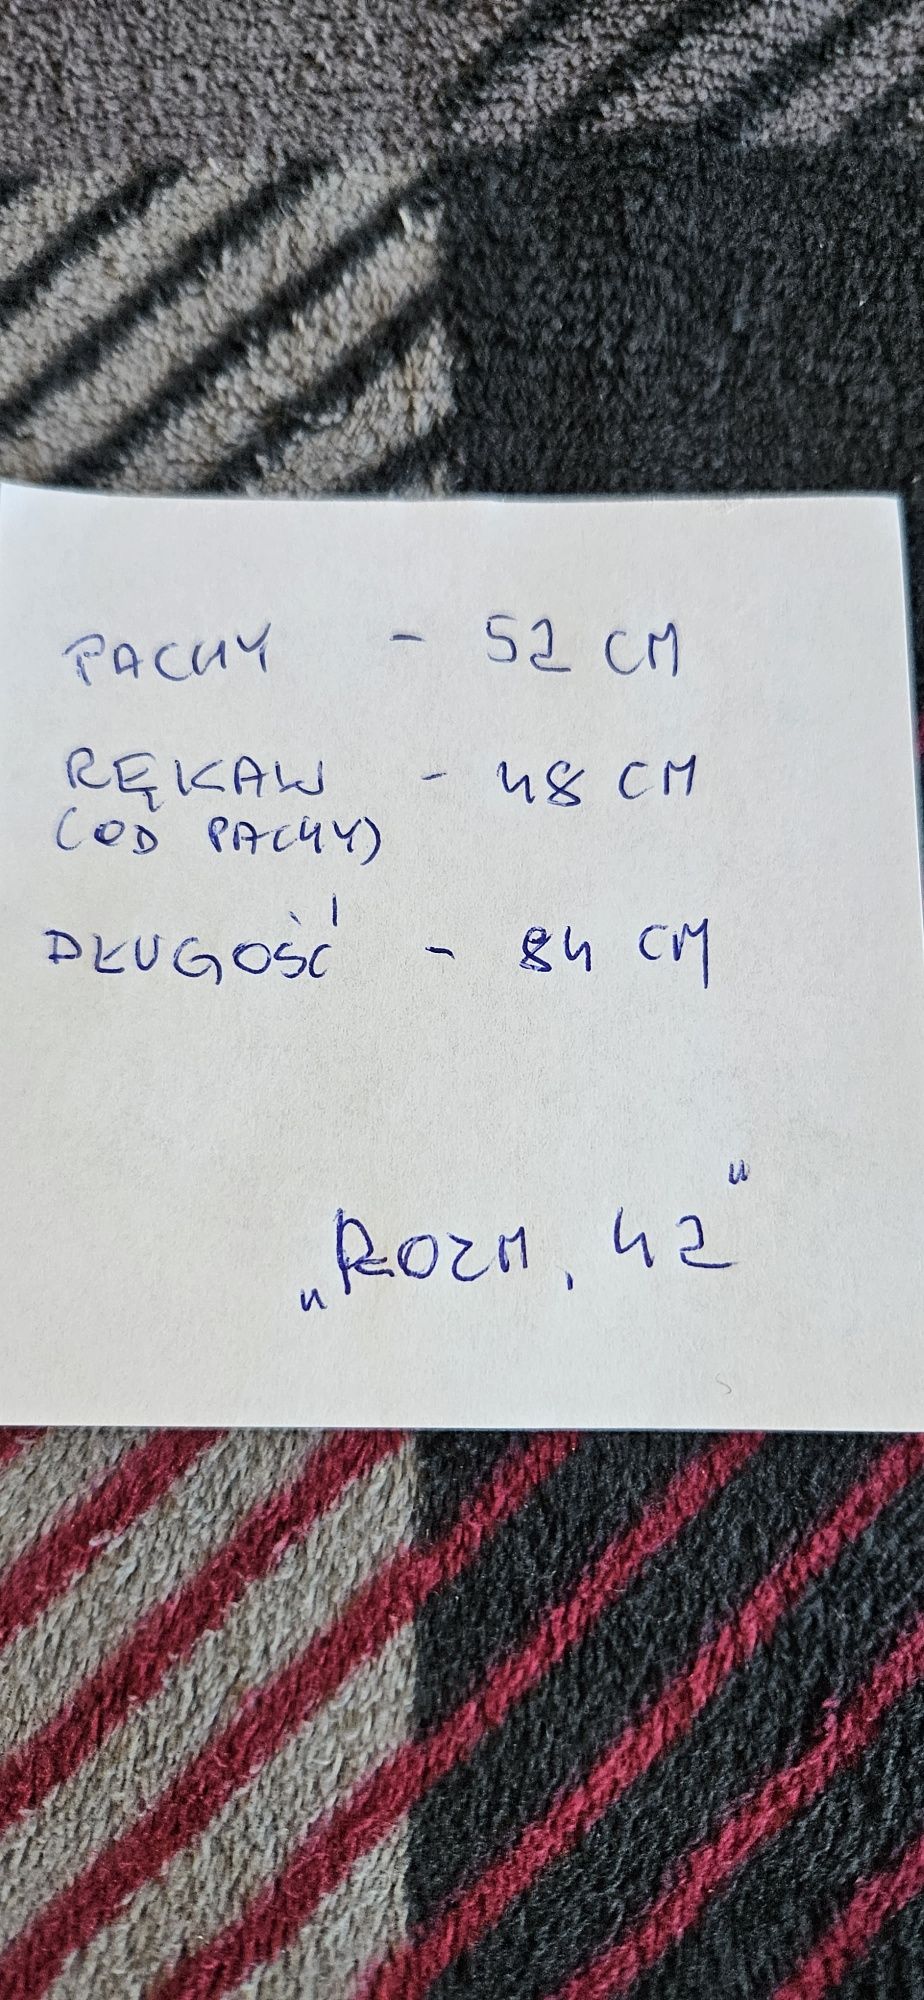 PACHY - 52 CM
RĘKAW - 48 CM
(OD PACHY)
DŁUGOŚĆ - 84 CM
„ROZM. 42"